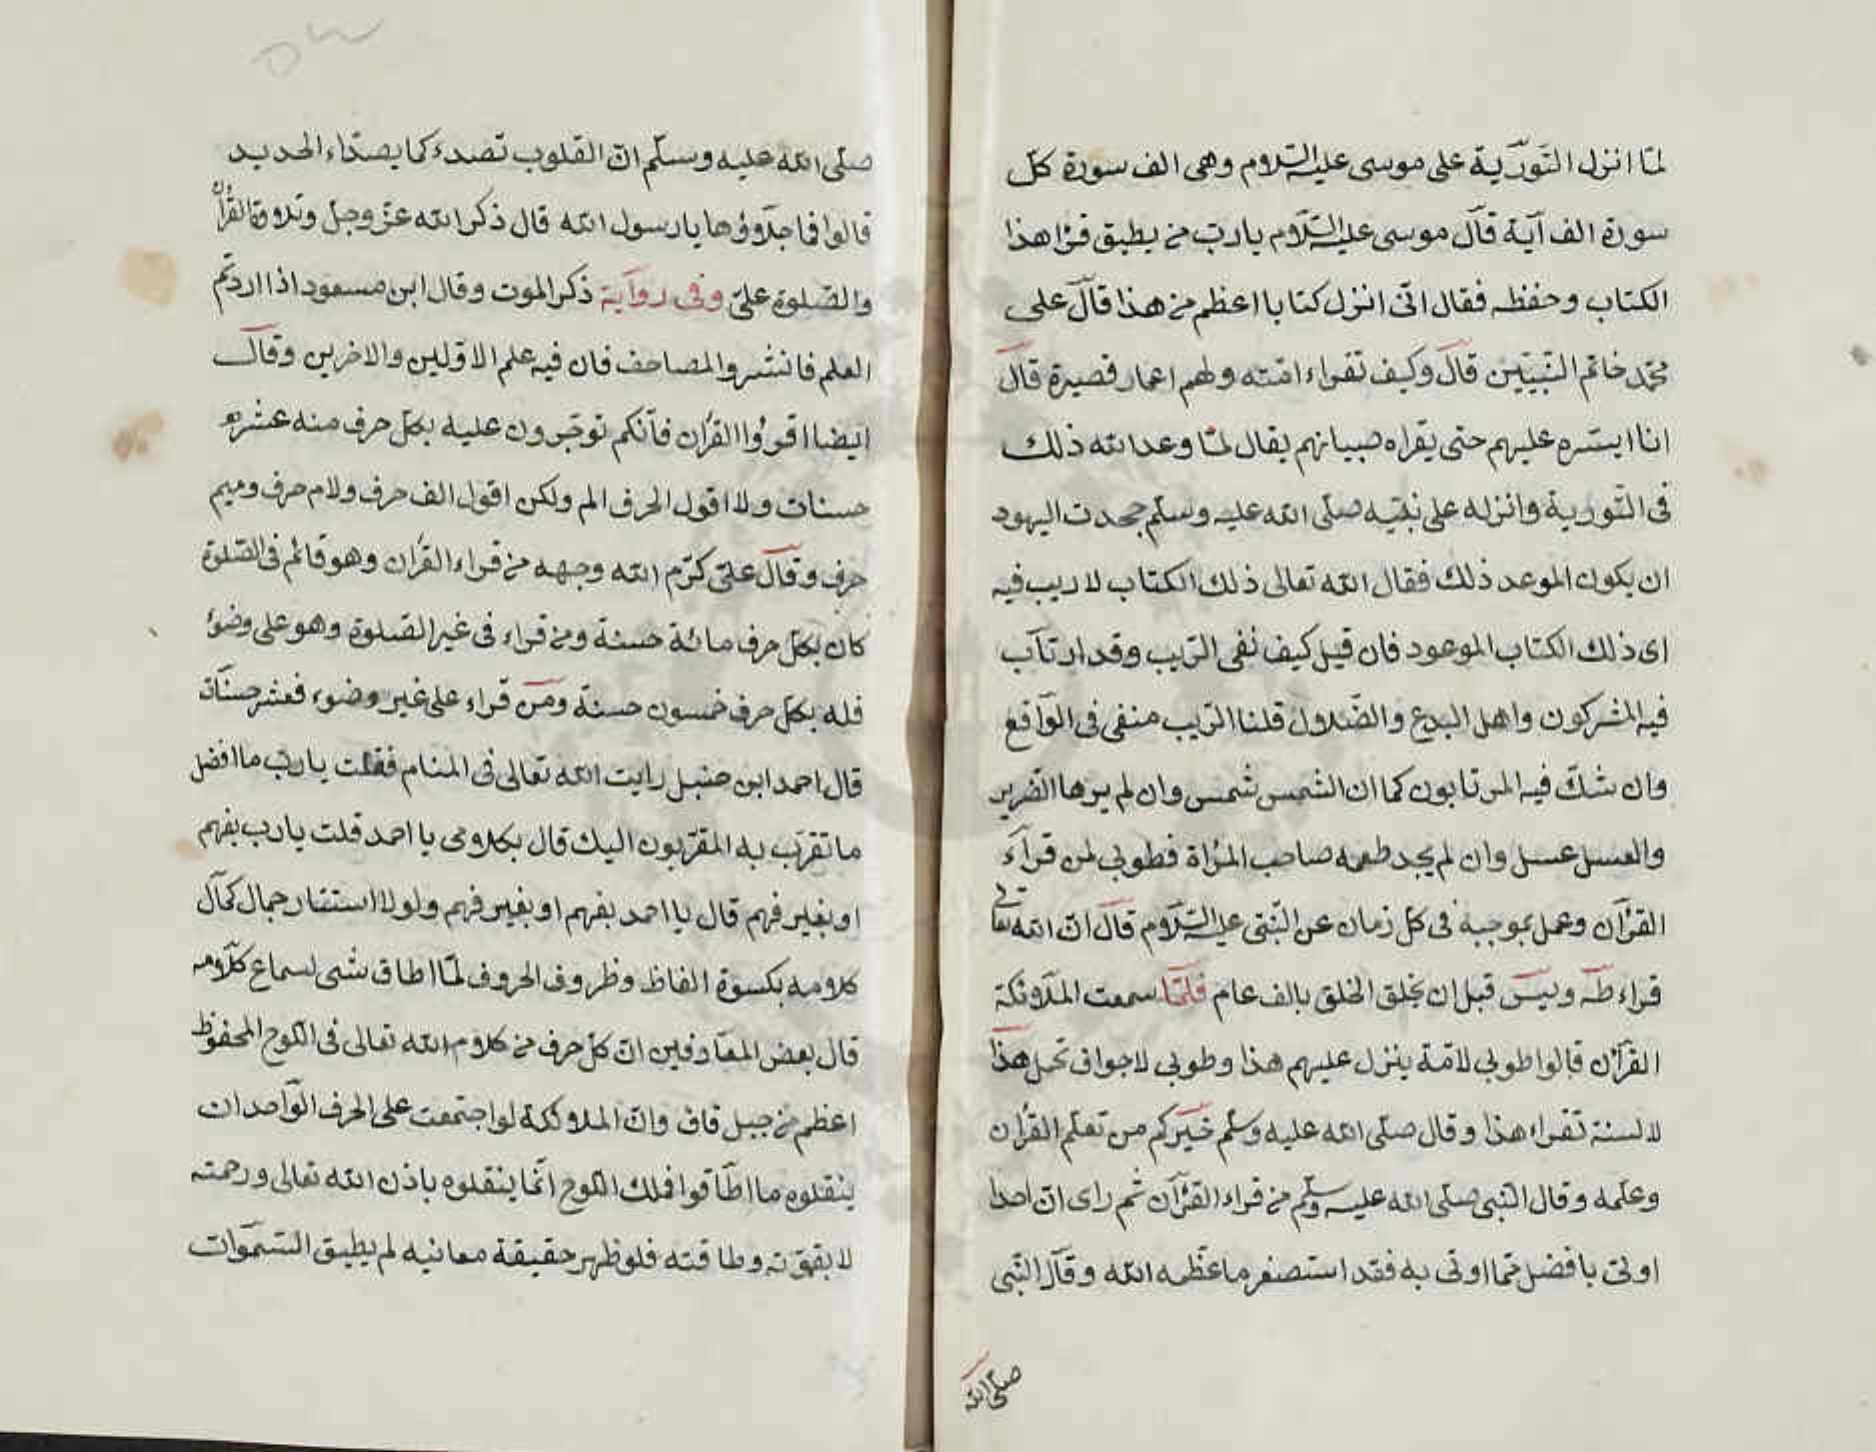 لمّا انزل التّورية على موسى عليه السّلام وهى الف سورة كلّ
سورة الف آية قال موسى عليه السّلام يا ربّ من يطيق قرا هذا
الكتاب وحفظه فقال انّى انزل كتابا اعظم من هذا قال على
محمّد خاتم النّبيّين قال وكيف تقراء امّته ولهم اعمار قصيرة قال
انا ايسّره عليهم حتى يقراه صبيانهم يقال لمّا وعد الله ذلك
فى التّورية وانزله على نبيّه صلّى الله عليه وسلّم جحدت اليهود
ان يكون الموعد ذلك فقال الله تعالى ذلك الكتاب لا ريب فيه
اى ذلك الكتاب الموعود فان قيل كيف نفى الرّيب وقد ارتاب
فيه المشركون واهل البدع والضّلال قلنا الرّيب منفى فى الواقع
وان شكّ فيه المرتابون كما ان الشّمس شمس وان لم يرها الضّرير
والعسل عسل وان لم يجد طعمه صاحب المرّاة فطوبى لمن قرآء
القرآن وعمل بموجبه فى كلّ زمان عن النّبى عليه السّلام قال انّ الله تعالى
قراء طه ويس قبل ان يخلق الخلق بالف عام فلمّا سمعت الملائكة
القرآن قالوا طوبى لامّة ينزل عليهم هذا وطوبى لاجواف تحمل هذا
لالسنة تقراء هذا وقال صلّى الله عليه وسلّم خيركم من تعلّم القرآن
وعلّمه وقال النّبى صلّى الله عليه وسلّم من قراء القرآن ثم راى انّ احدا
اوتى بافضل ممّا اوتى به فقد استصغر ما عظّمه الله وقال النّبى
صلّى الله
صلّى الله عليه وسلّم انّ القلوب تصدء كما يصدّاء الحديد
قالوا فما جلاؤها يا رسول الله قال ذكر الله عزّ وجلّ وتلاوة القرآن
والصّلوة علىّ وفى رواية ذكر الموت وقال ابن مسعود اذا اردتم
العلم فانشروا المصاحف فان فيه علم الاوّلين والاخرين وقال
ايضا اقرؤوا القرآن فانّكم توجرون عليه بكلّ حرف منه عشر
حسنات ولا اقول الحرف الم ولكن اقول الف حرف ولام حرف وميم
حرف وقال علىّ كرّم الله وجهه من قراء القرآن وهو قائم فى الصّلوة
كان بكلّ حرف مائة حسنة ومن قراء فى غير الصّلوة وهو على وضوء
فله بكلّ حرف خمسون حسنة ومن قراء على غير وضوء فعشر حسنات
قال احمد ابن حنبل رايت الله تعالى فى المنام فقلت يا ربّ ما افضل
ما تقرّب به المقرّبون اليك قال بكلامى يا احمد قلت يا رب بفهم
او بغير فهم قال يا احمد بفهم او بغير فهم ولولا استتار جمال كمال
كلامه بكسوة الفاظ وظروف الحروف لمّا اطاق شى لسماع كلامه
قال بعض العارفين انّ كلّ حرف من كلام الله تعالى فى اللّوح المحفوظ
اعظم من جبل قاف وانّ الملائكة لو اجتمعت على الحرف الواحد ان
ينقلوه ما اطاقوا فملك اللّوح انّما ينقلوه باذن الله تعالى ورحمته
لا بقوّته وطاقته فلو ظهر حقيقة معانيه لم يطيق السّموات